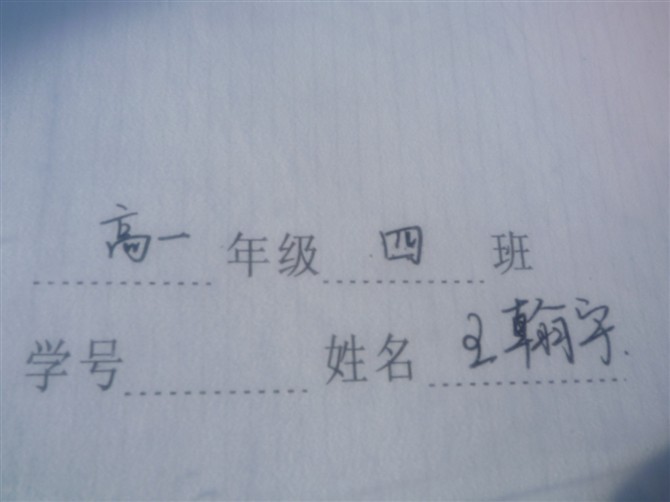 高一年级四班
学号 姓名王翰宇